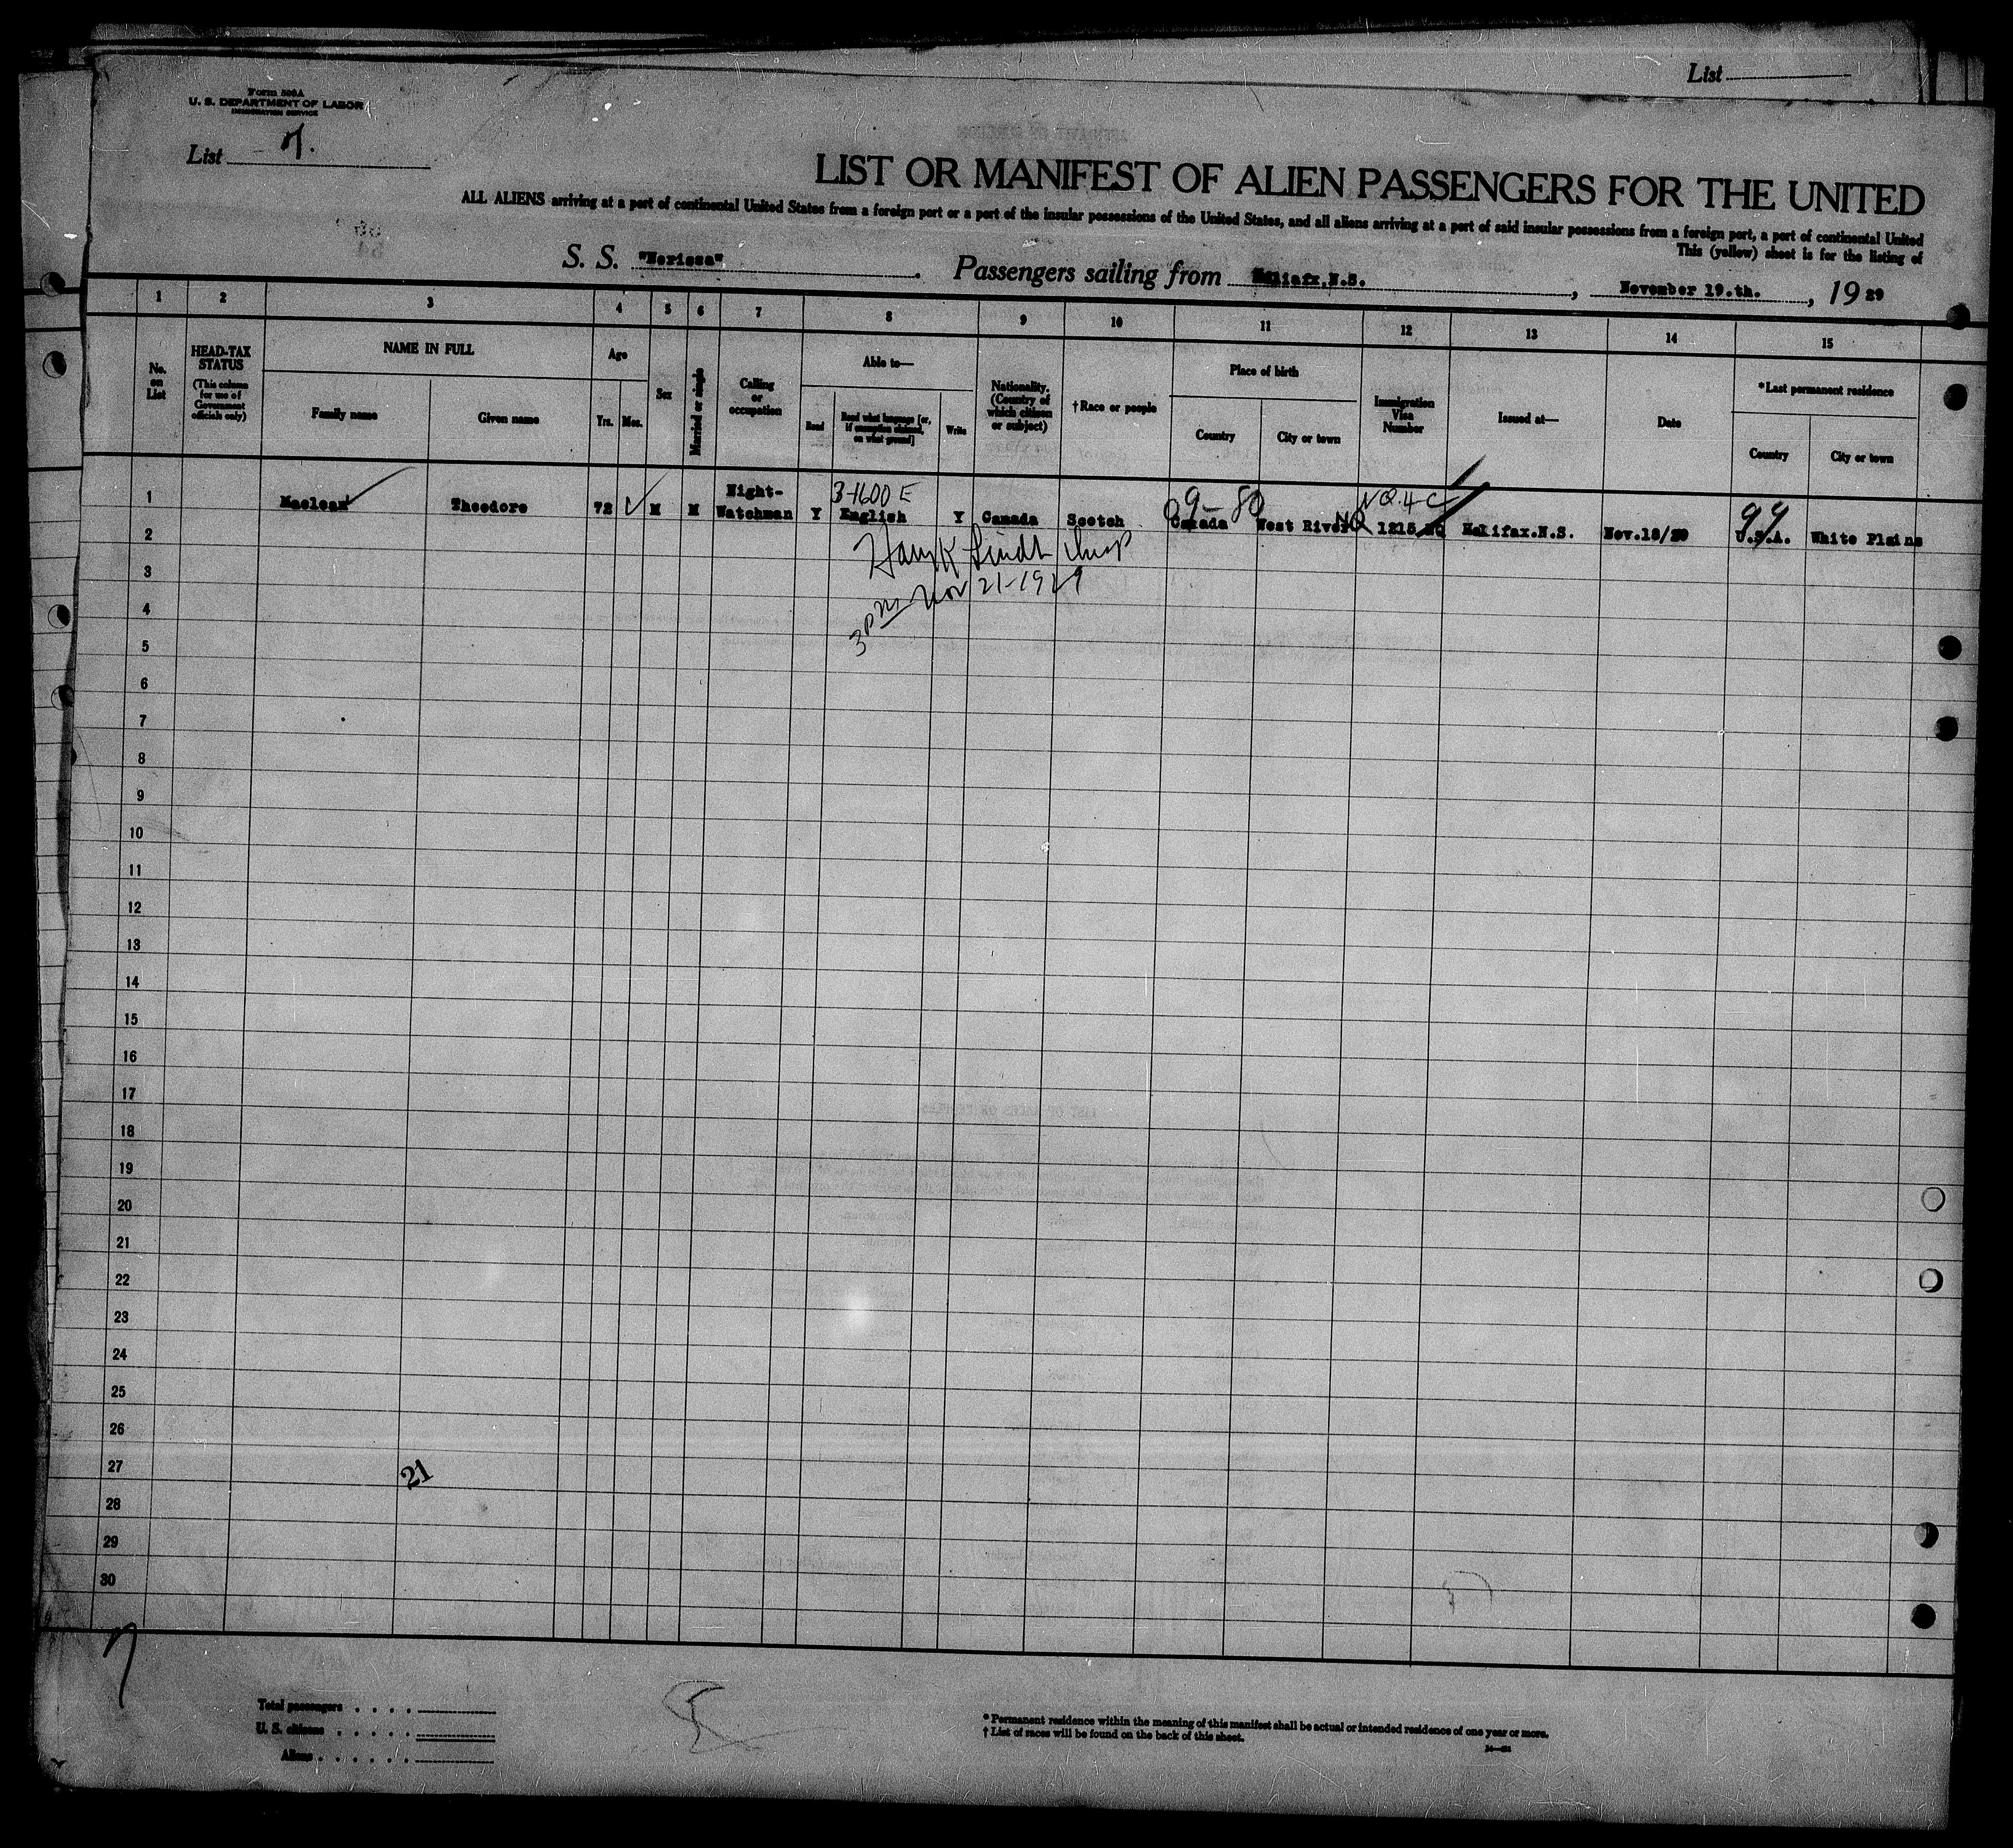 List
Form 500A
U. S. DEPARTMENT OF LABOR
IMMIGRATION SERVICE
List 7.
LIST OR MANIFEST OF ALIEN PASSENGERS FOR THE UNITED
ALL ALIENS arriving at a port of continental United States from a foreign port or a port of the insular possessions of the United States, and all aliens arriving at a port of said insular possessions from a foreign port, a port of continental United
This (yellow) sheet is for the listing of
S. S. "Nerissa". Passengers sailing from Halifax, N.S., November 19.th., 1929
1 2 3 4 5 6 7 8 9 10 11 12 13 14 15
No. on List
HEAD-TAX STATUS
(This column for use of Government officials only)
NAME IN FULL
Family name
Given name
Age
Yrs. Mos.
Sex
Married or single
Calling or occupation
Able to—
Read
Read what language [or, if exemption claimed, on what ground]
Write
Nationality. (Country of which citizen or subject)
† Race or people
Place of birth
Country
City or town
Immigration Visa Number
Issued at—
Date
*Last permanent residence
Country
City or town
3-1600 E
09-80
NQ.4 C
99
1 Maclean Theodore 72 M M Night-Watchman Y English Y Canada Scotch Canada West River NQ 1215 Halifax.N.S. Nov.18/29 U.S.A. White Plains
3 PM Nov 21-1929
2
3
4
5
6
7
8
9
10
11
12
13
14
15
16
17
18
19
20
21
22
23
24
25
26
27
21
28
29
30
7
Total passengers
U. S. citizens
Aliens
* Permanent residence within the meaning of this manifest shall be actual or intended residence of one year or more.
† List of races will be found on the back of this sheet.